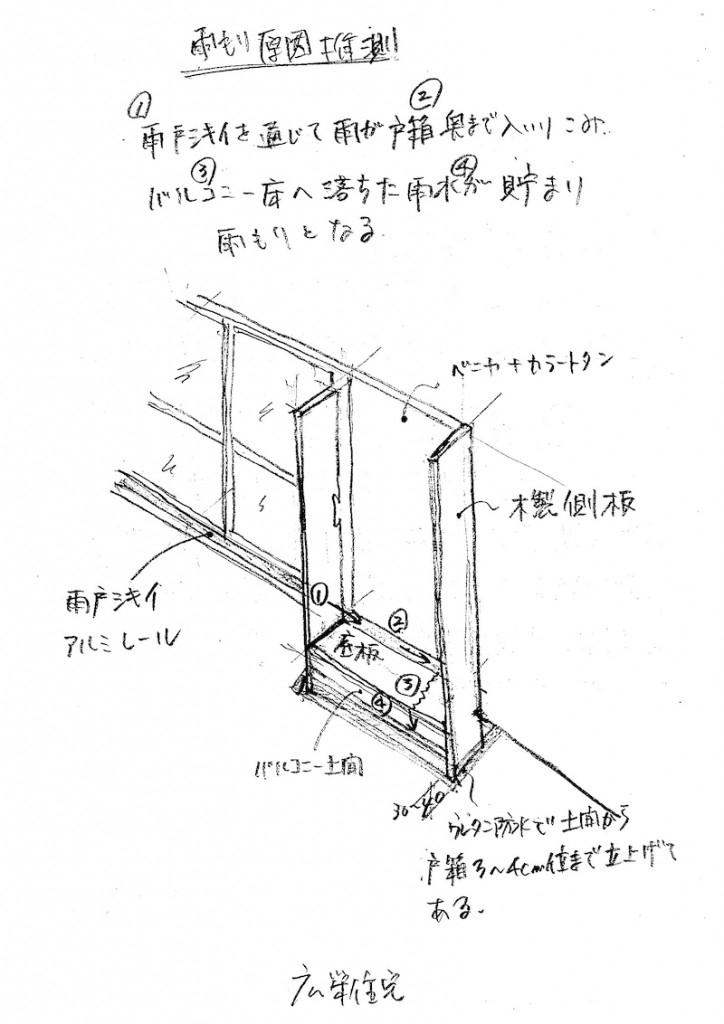 雨もり原因推測
① ②
雨戸シキイを通じて雨が戸箱奥まで入いりこみ
③ ④
バルコニー床へ落ちた雨水が貯まり
雨もりとなる
ベニヤ+カラートタン
木製側板
雨戸シキイ
アルミレール
①
②
底板
③
④
バルコニー土間
30~40
ウレタン防水で土間から
戸箱3~4cm位まで立上げて
ある。